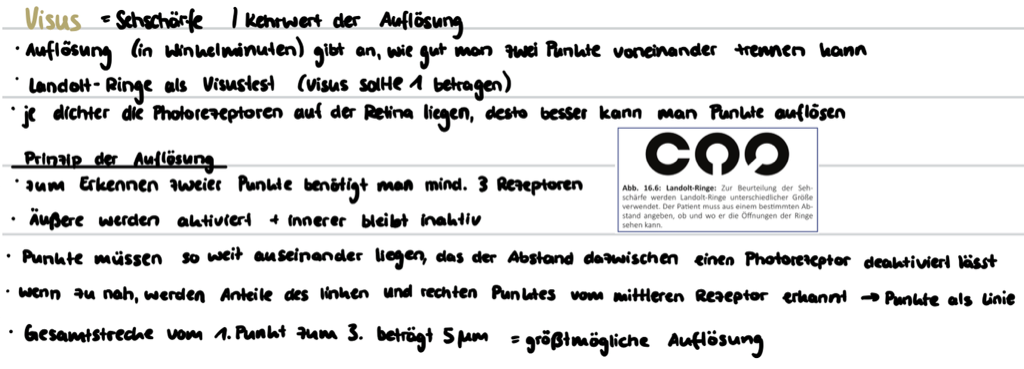 Visus = Sehschärfe / Kehrwert der Auflösung
· Auflösung (in Winkelminuten) gibt an, wie gut man zwei Punkte voneinander trennen kann
· Landolt-Ringe als Visustest (Visus sollte 1 betragen)
· je dichter die Photorezeptoren auf der Retina liegen, desto besser kann man Punkte auflösen
Prinzip der Auflösung
· zum Erkennen zweier Punkte benötigt man mind. 3 Rezeptoren
· Äußere werden aktiviert + innerer bleibt inaktiv
Abb. 16.6: Landolt-Ringe: Zur Beurteilung der Seh-
schärfe werden Landolt-Ringe unterschiedlicher Größe
verwendet. Der Patient muss aus einem bestimmten Ab-
stand angeben, ob und wo er die Öffnungen der Ringe
sehen kann.
· Punkte müssen so weit auseinander liegen, das der Abstand dazwischen einen Photorezeptor deaktiviert lässt
· wenn zu nah, werden Anteile des linken und rechten Punktes vom mittleren Rezeptor erkannt → Punkte als Linie
· Gesamtstrecke vom 1. Punkt zum 3. beträgt 5 µm = größtmögliche Auflösung